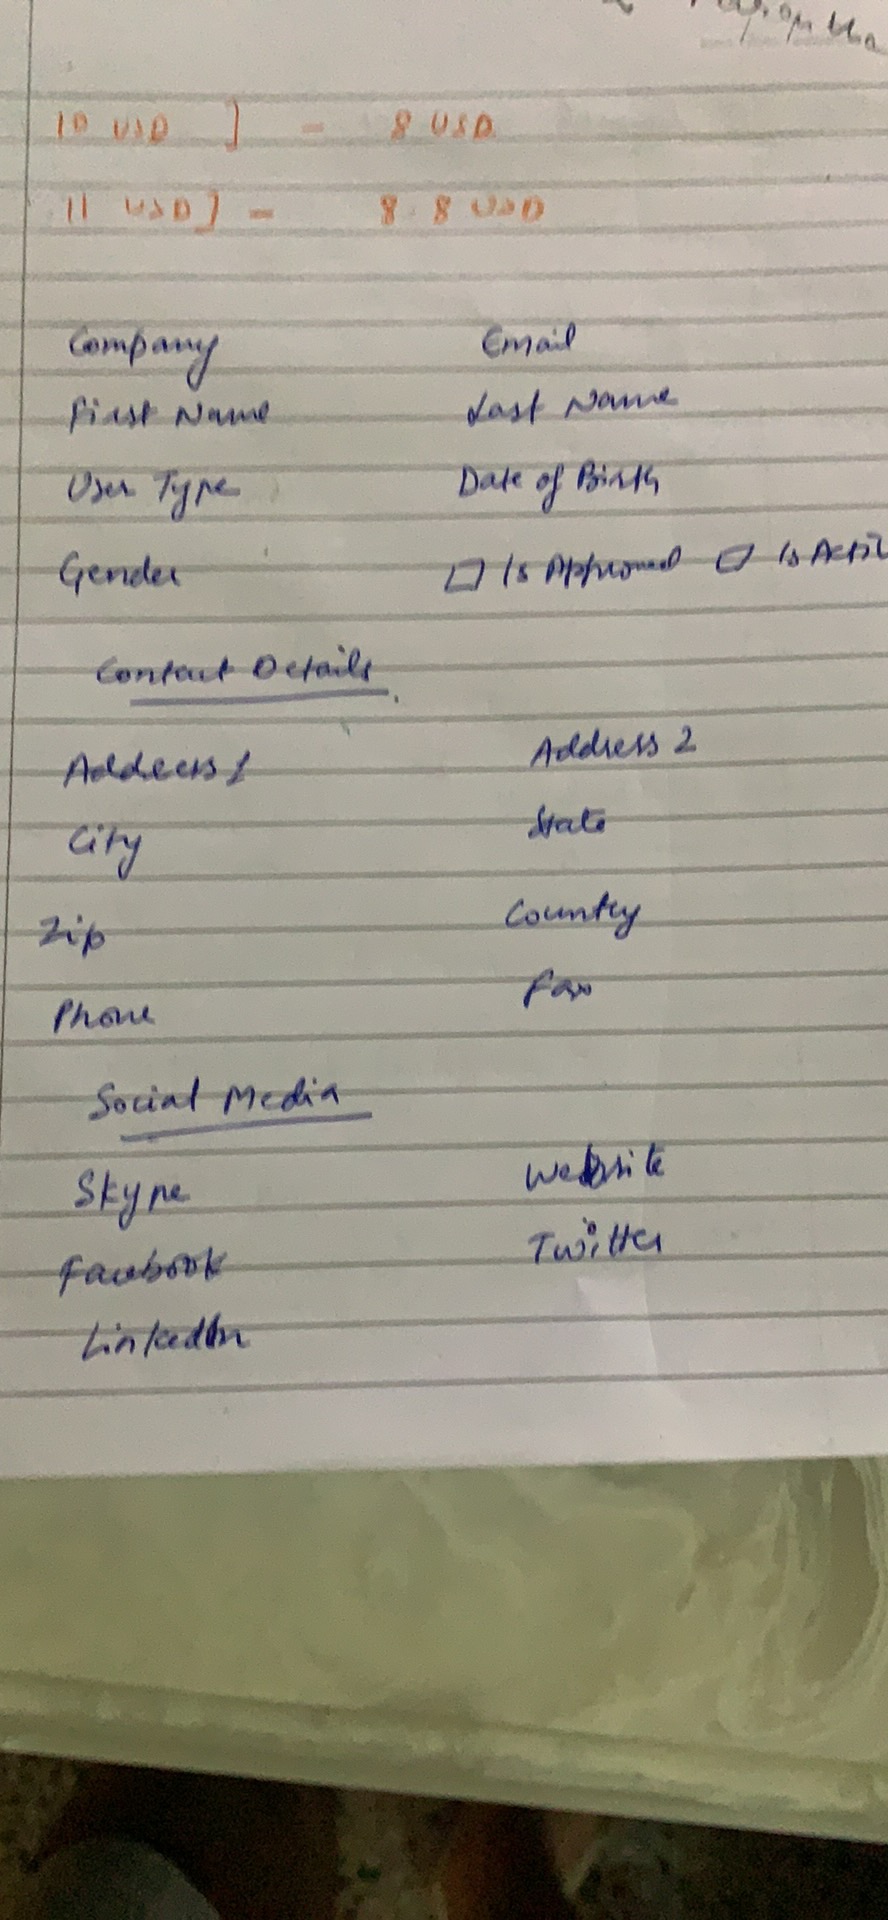 10 USD ] - 8 USD
11 USD ] - 8.8 USD
Company Email
First Name Last Name
User Type Date of Birth
Gender Is Approved
Contact Details
Address 1 Address 2
City State
Zip Country
Phone Fax
Social Media
Skype Website
Facebook Twitter
LinkedIn